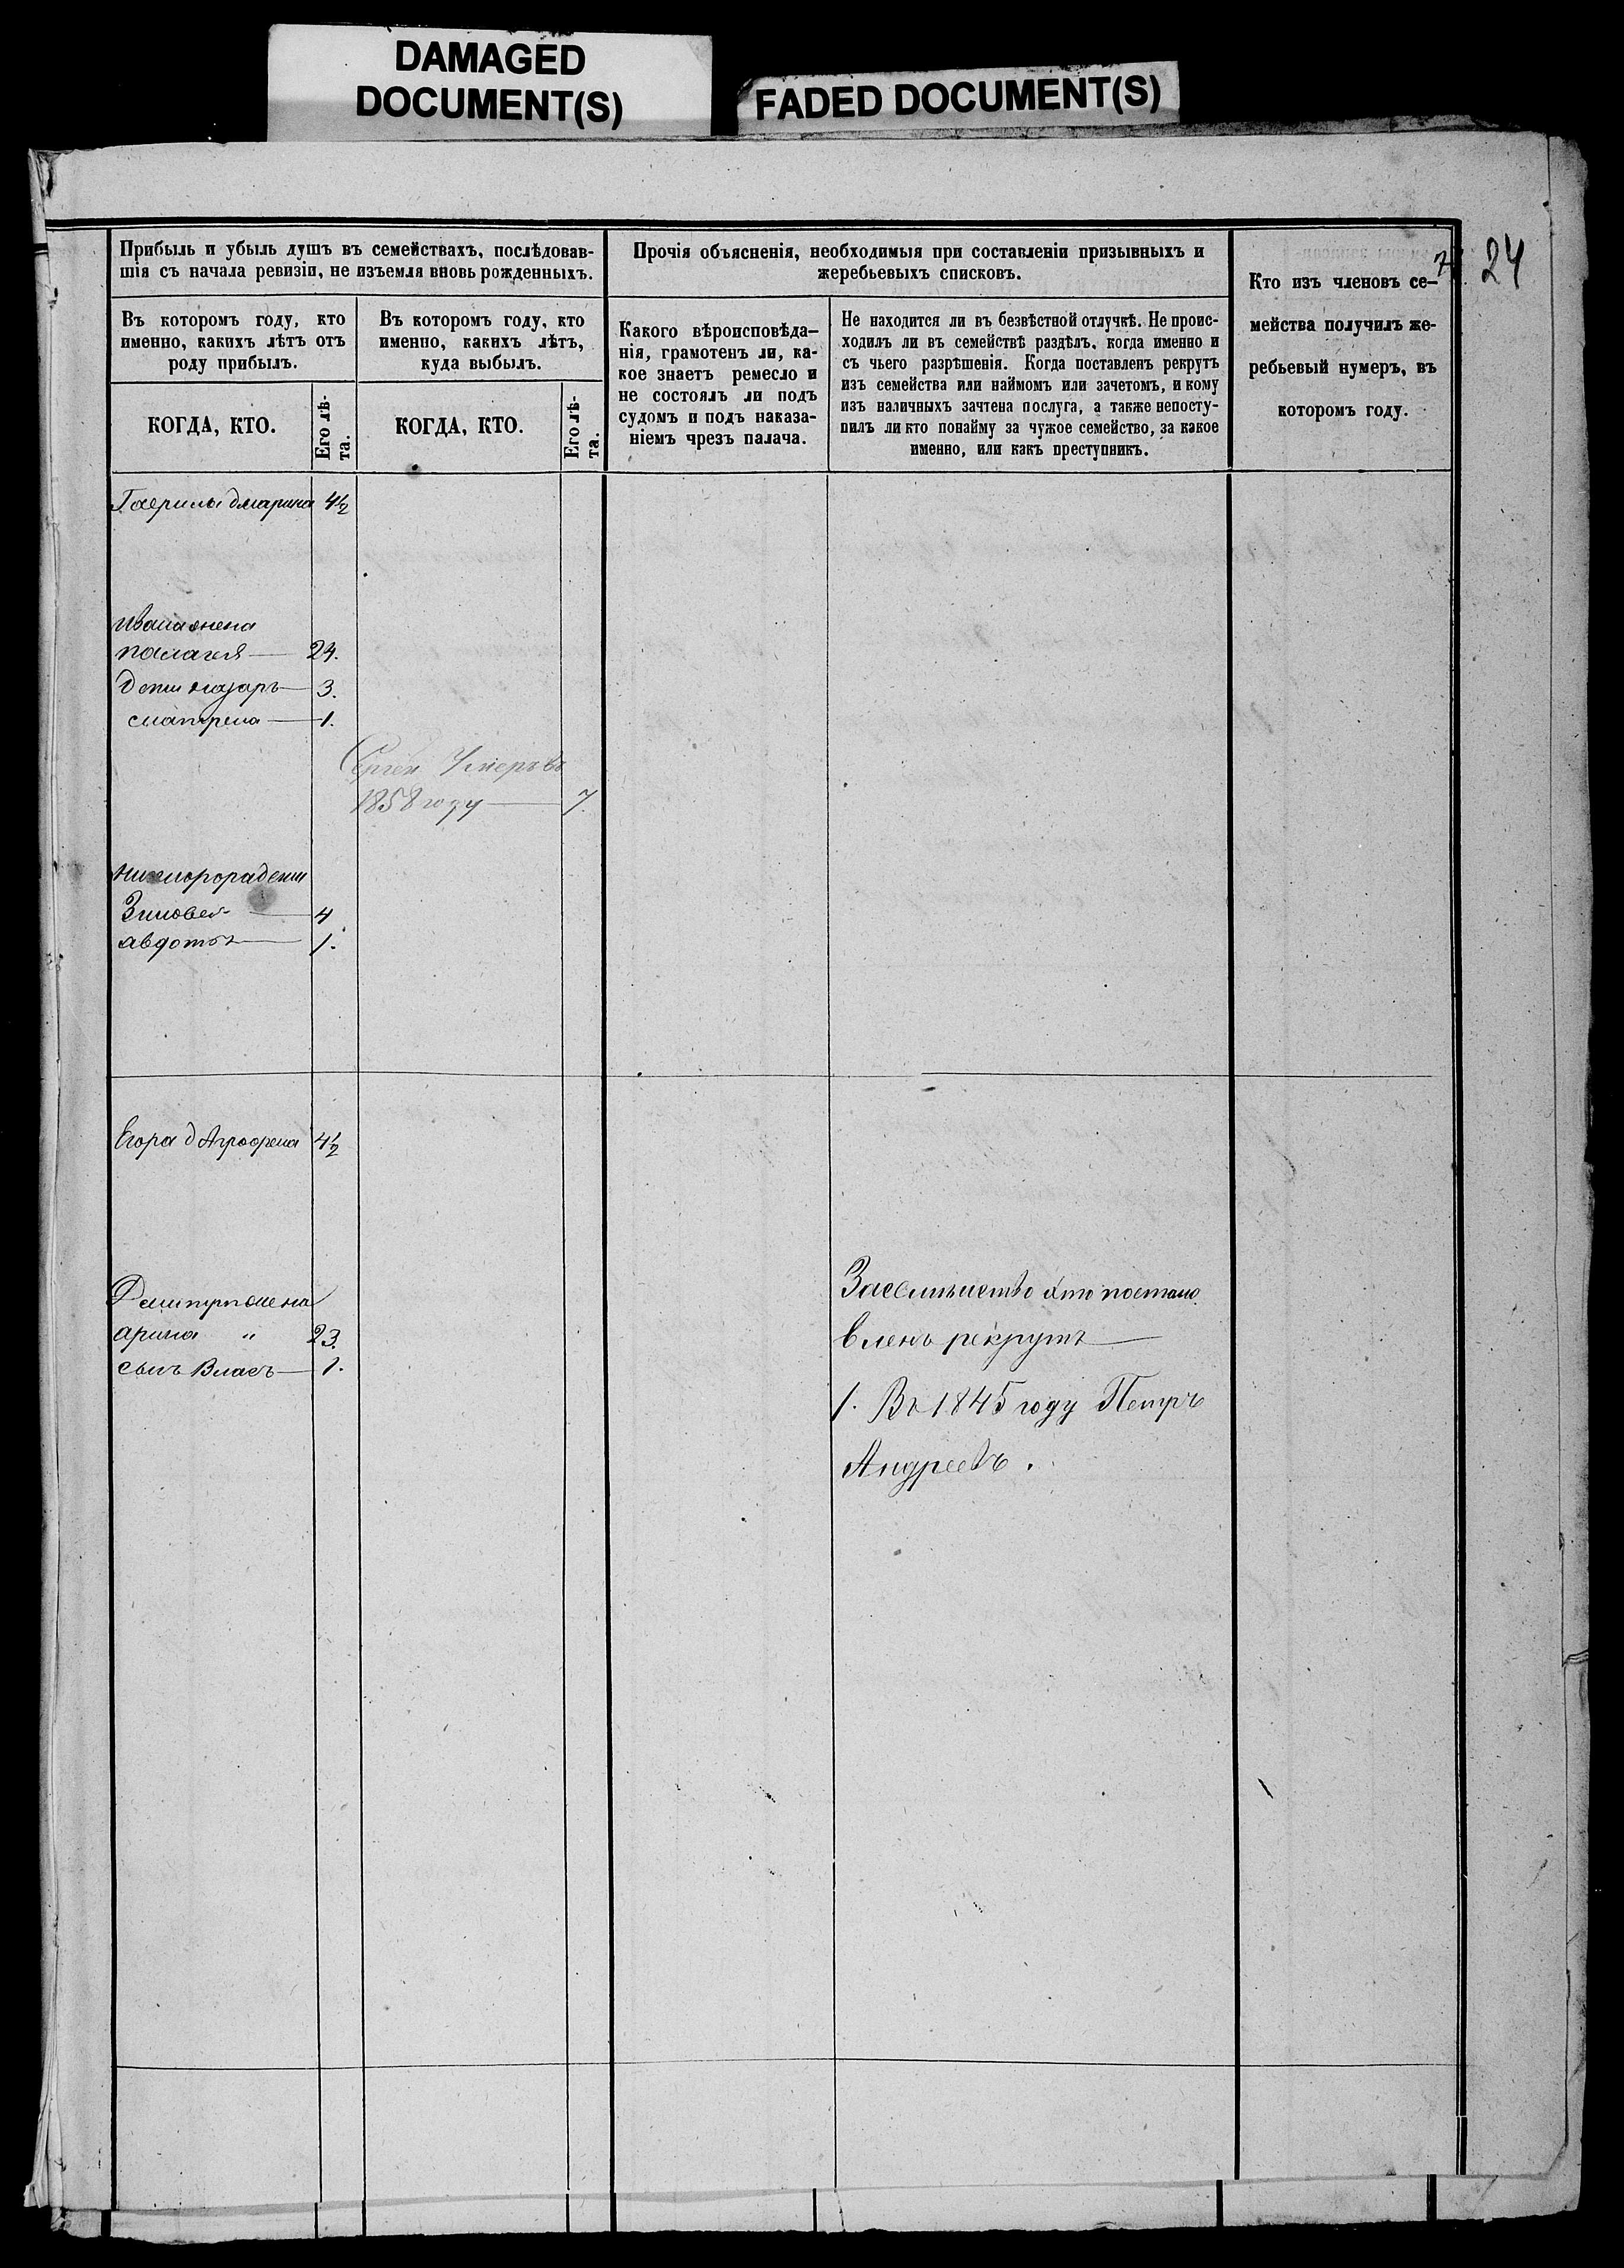 DAMAGED
DOCUMENT(S)
FADED DOCUMENT(S)
24
7
Прибыль и убыль душъ въ семействахъ, послѣдовав-
шія съ начала ревизіи, не изъемля вновь рожденныхъ.
Въ которомъ году, кто
именно, какихъ лѣтъ отъ
роду прибылъ.
КОГДА, КТО.
Его лѣ-
та.
Въ которомъ году, кто
именно, какихъ лѣтъ,
куда выбылъ.
КОГДА, КТО.
Его лѣ-
та.
Прочія объясненія, необходимыя при составленіи призывныхъ и
жеребьевыхъ списковъ.
Какого вѣроисповѣда-
нія, грамотенъ ли, ка-
кое знаетъ ремесло и
не состоялъ ли подъ
судомъ и подъ наказа-
ніемъ чрезъ палача.
Не находится ли въ безвѣстной отлучкѣ. Не проис-
ходилъ ли въ семействѣ раздѣлъ, когда именно и
съ чьего разрѣшенія. Когда поставленъ рекрутъ
изъ семейства или наймомъ или зачетомъ, и кому
изъ наличныхъ зачтена послуга, а также непосту-
пилъ ли кто понайму за чужое семейство, за какое
именно, или какъ преступникъ.
Кто изъ членовъ се-
мейства получилъ же-
ребьевый нумеръ, въ
которомъ году.
Гаврилы д марина 4½
ивана жена
палагея 24.
дети назаръ 3.
1.
Сергей Умеръ въ
1858 году 7.
дети
Зиновей 4
авдотья 1.
Егора д Аграфена 4½
жена
арина " 23.
сынъ Власъ 1.
постано
вленъ рекрутъ
1. Въ 1845 году Петръ
Андреевъ.